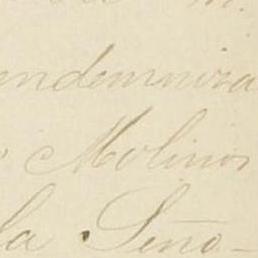 m.
endemniza
Molinos
la Seño-